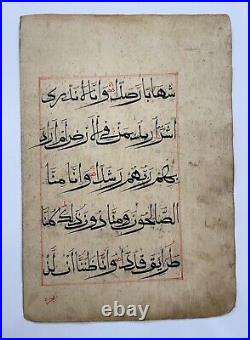 شهابا رصدا وانا لا ندري
اشر اريد بمن في الارض ام اراد
بهم ربهم رشدا وانا منا
الصالحون ومنا دون ذلك كنا
طرايق قددا وانا ظننا ان لن